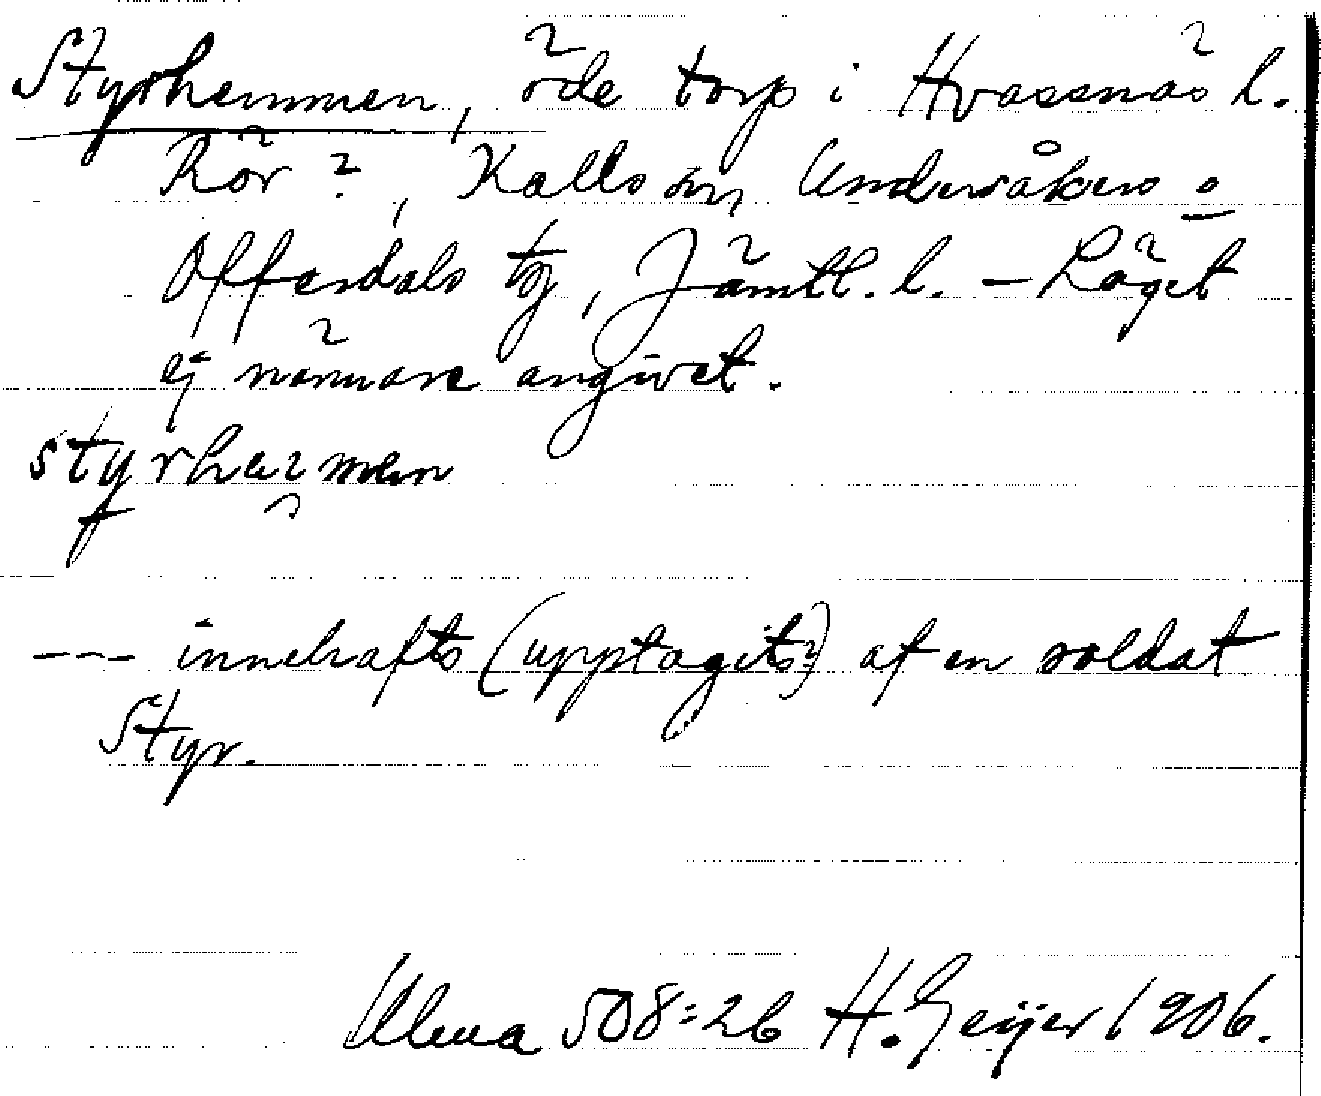 Styrhemmen, öde torp i Hvassnäs l.
Rör?, Kalls sn, Undersåkers o
Offerdals tg, Jämtl. l. – Läget
ej närmare angivet.
styrhemmen
--- innehafts (upptagits?) af en soldat
Styr.
Ulma 508:26 H. Geijer 1906.